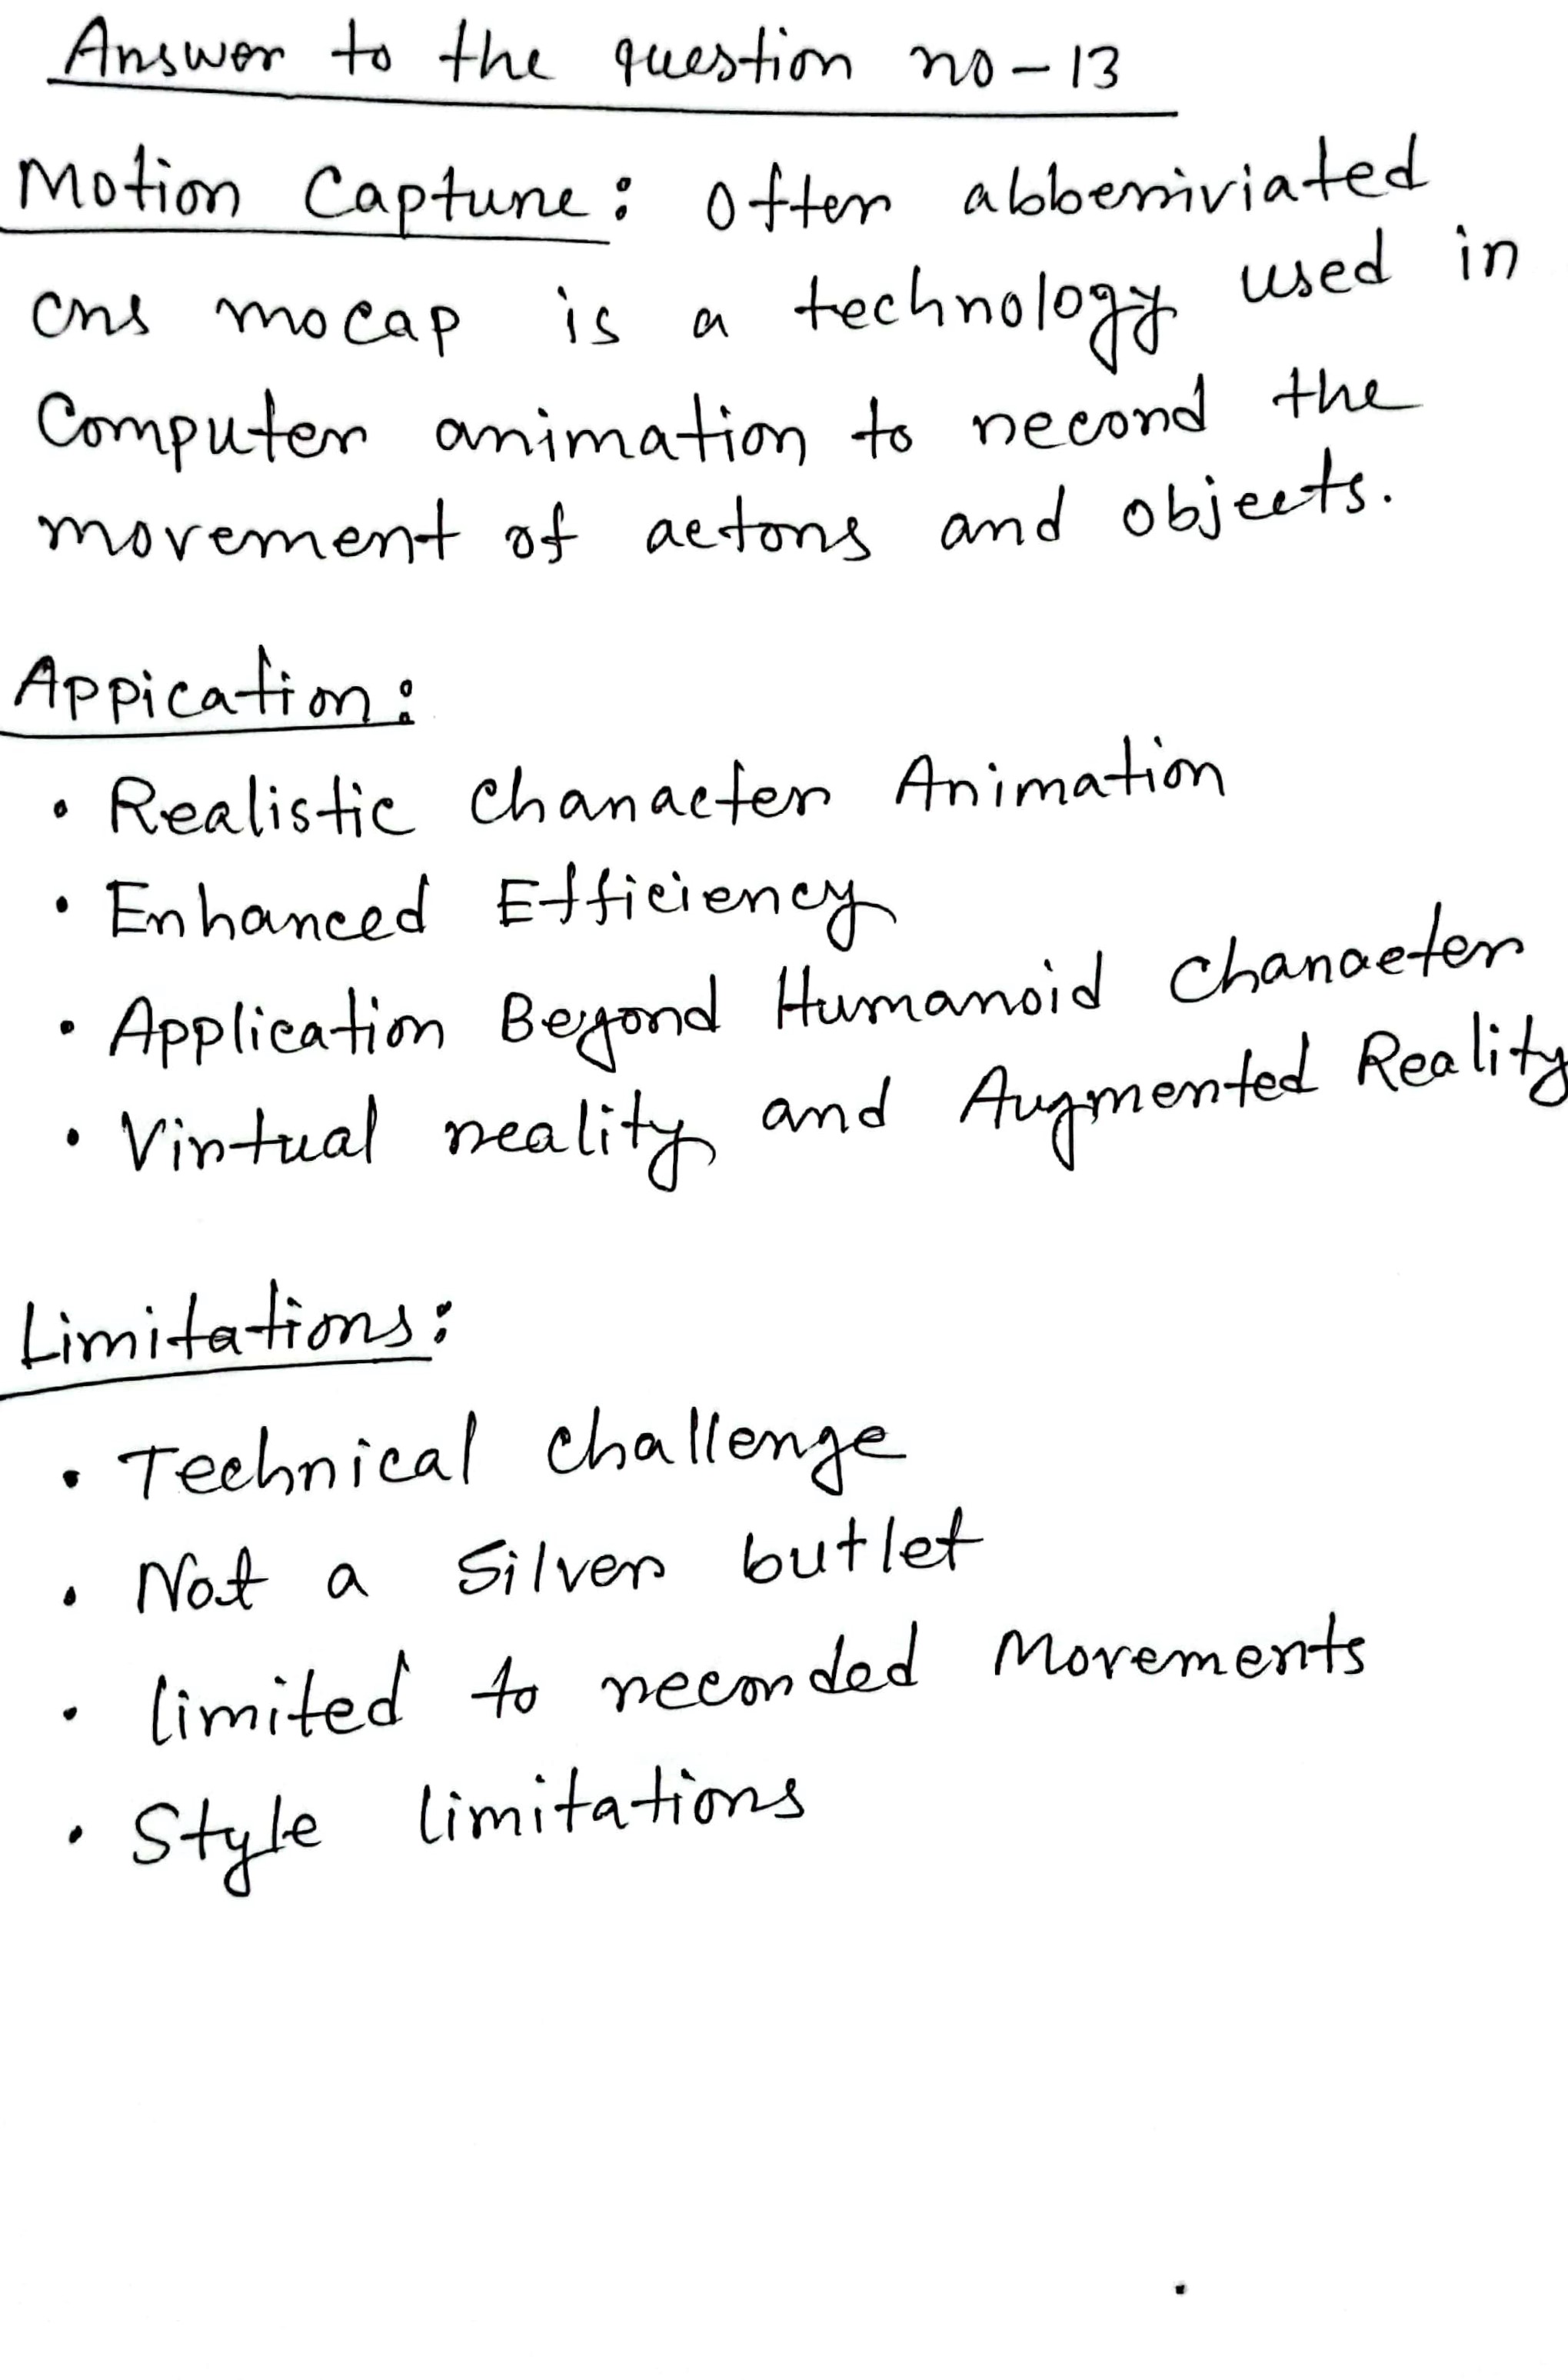 Answer to the question no-13
Motion Capture: Often abberriviated
as mocap is a technology used in
Computer animation to record the
movement of actors and objects.
Appication:
• Realistic Character Animation
• Enhanced Efficiency
• Application Beyond Humanoid Character
• Virtual reality and Augmented Reality
Limitations:
• Technical challenge
• Not a silver butlet
• limited to recorded Movements
• Style limitations